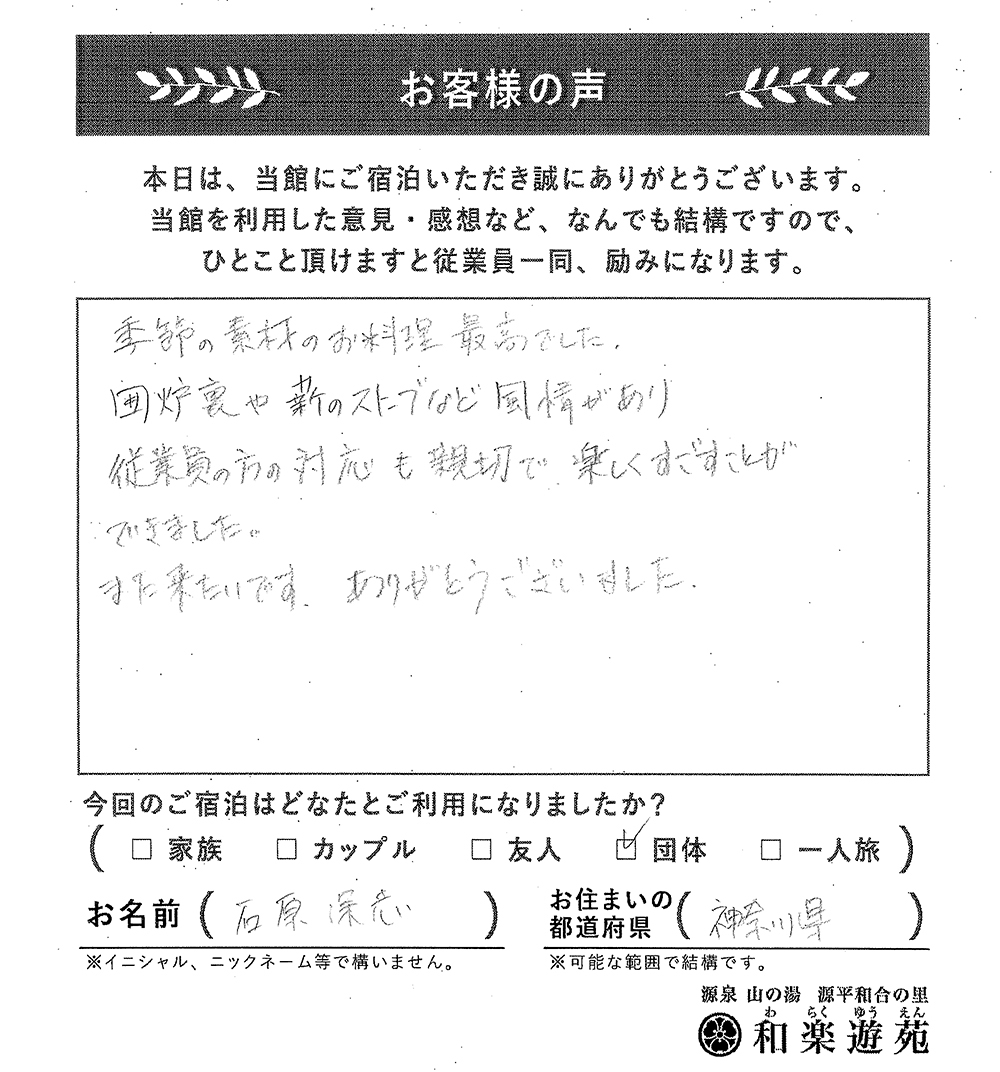 お客様の声
本日は、当館にご宿泊いただき誠にありがとうございます。
当館を利用した意見・感想など、なんでも結構ですので、
ひとこと頂けますと従業員一同、励みになります。
季節の素材のお料理 最高でした.
囲炉裏や薪のストーブなど 風情があり
従業員の方の対応も親切で 楽しくすごすことが
できました。
また来たいです. ありがとうございました.
今回のご宿泊はどなたとご利用になりましたか?
( □ 家族 □ カップル □ 友人 ☑ 団体 □ 一人旅 )
お名前 ( 石原 )
お住まいの都道府県 ( 神奈川県 )
※イニシャル、ニックネーム等で構いません。
※可能な範囲で結構です。
源泉 山の湯 源平和合の里
わ らく ゆう えん
和楽遊苑